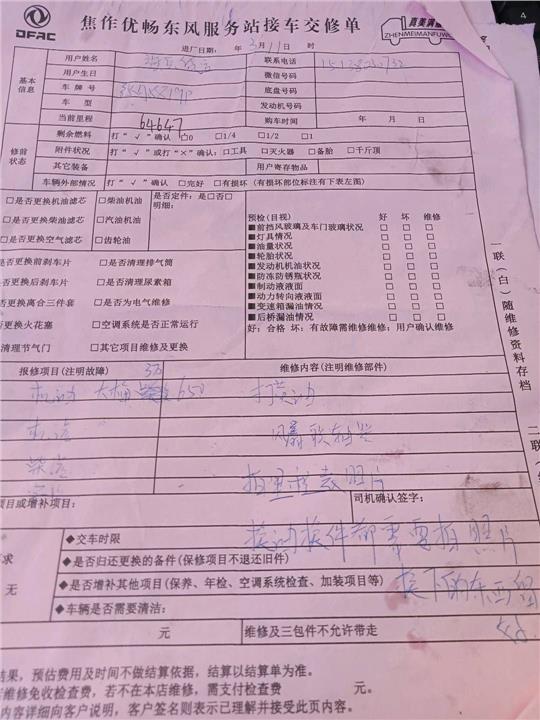 4
DFAC
焦作优畅东风服务站接车交修单
真美满服务
ZHENMEIMANFUWU
进厂日期: 年 3月11日 时
基本信息
用户姓名
联系电话
用户生日
微信号码
车 牌 号
底盘号码
车 型
发动机号码
当前里程 64647
购车时间 年 月 日
修前状态
剩余燃料 打“√”确认 □0 □1/4 □1/2 □1
附件状况 打“√”或打“×”确认:□工具 □灭火器 □备胎 □千斤顶
其它装备
用户寄存物品
车辆外部情况 打“√”确认 □完好 □有损坏(有损坏部位标注有下表左图)
□是否更换机油滤芯 □柴油机油 是否定件:是□否□
明细:
□是否更换柴油滤芯 □汽油机油
□是否更换空气滤芯 □齿轮油
预检(目视) 好 坏 维修
■前挡风玻璃及车门玻璃状况 □ □ □
■灯具情况 □ □ □
■油量状况 □ □ □
■轮胎状况 □ □ □
■发动机机油状况 □ □ □
■防冻防锈瓶状况 □ □ □
■制动液液面 □ □ □
■动力转向液液面 □ □ □
■变速箱漏油情况 □ □ □
■后桥漏油情况 □ □ □
好:合格 坏:有故障需维修维修:用户确认维修
是否更换前刹车片 □是否清理排气筒
是否更换后刹车片 □是否清理尿素箱
更换离合三件套 □是否为电气维修
更换火花塞 □空调系统是否正常运行
清理节气门 □其它项目维修及更换
一联(白)随维修资料存档
报修项目(注明故障)
维修内容(注明维修部件)
机油 大桶 650
打黄油
机滤
柴滤
拍里程表照片
项目或增补项目:
司机确认签字:
换油换件都需要拍照片
◆交车时限
◆是否归还更换的备件(保修项目不退还旧件)
◆是否增补其他项目(保养、年检、空调系统检查、加装项目等)
换下的东西留
◆车辆是否需要清洁:
求
无
元
维修及三包件不允许带走
结果,预估费用及时间不做结算依据,结算以结算单为准。
维修免收检查费,若不在本店维修,需支付检查费 元。
内容详细向客户说明,客户签名则表示已理解并接受此页内容。